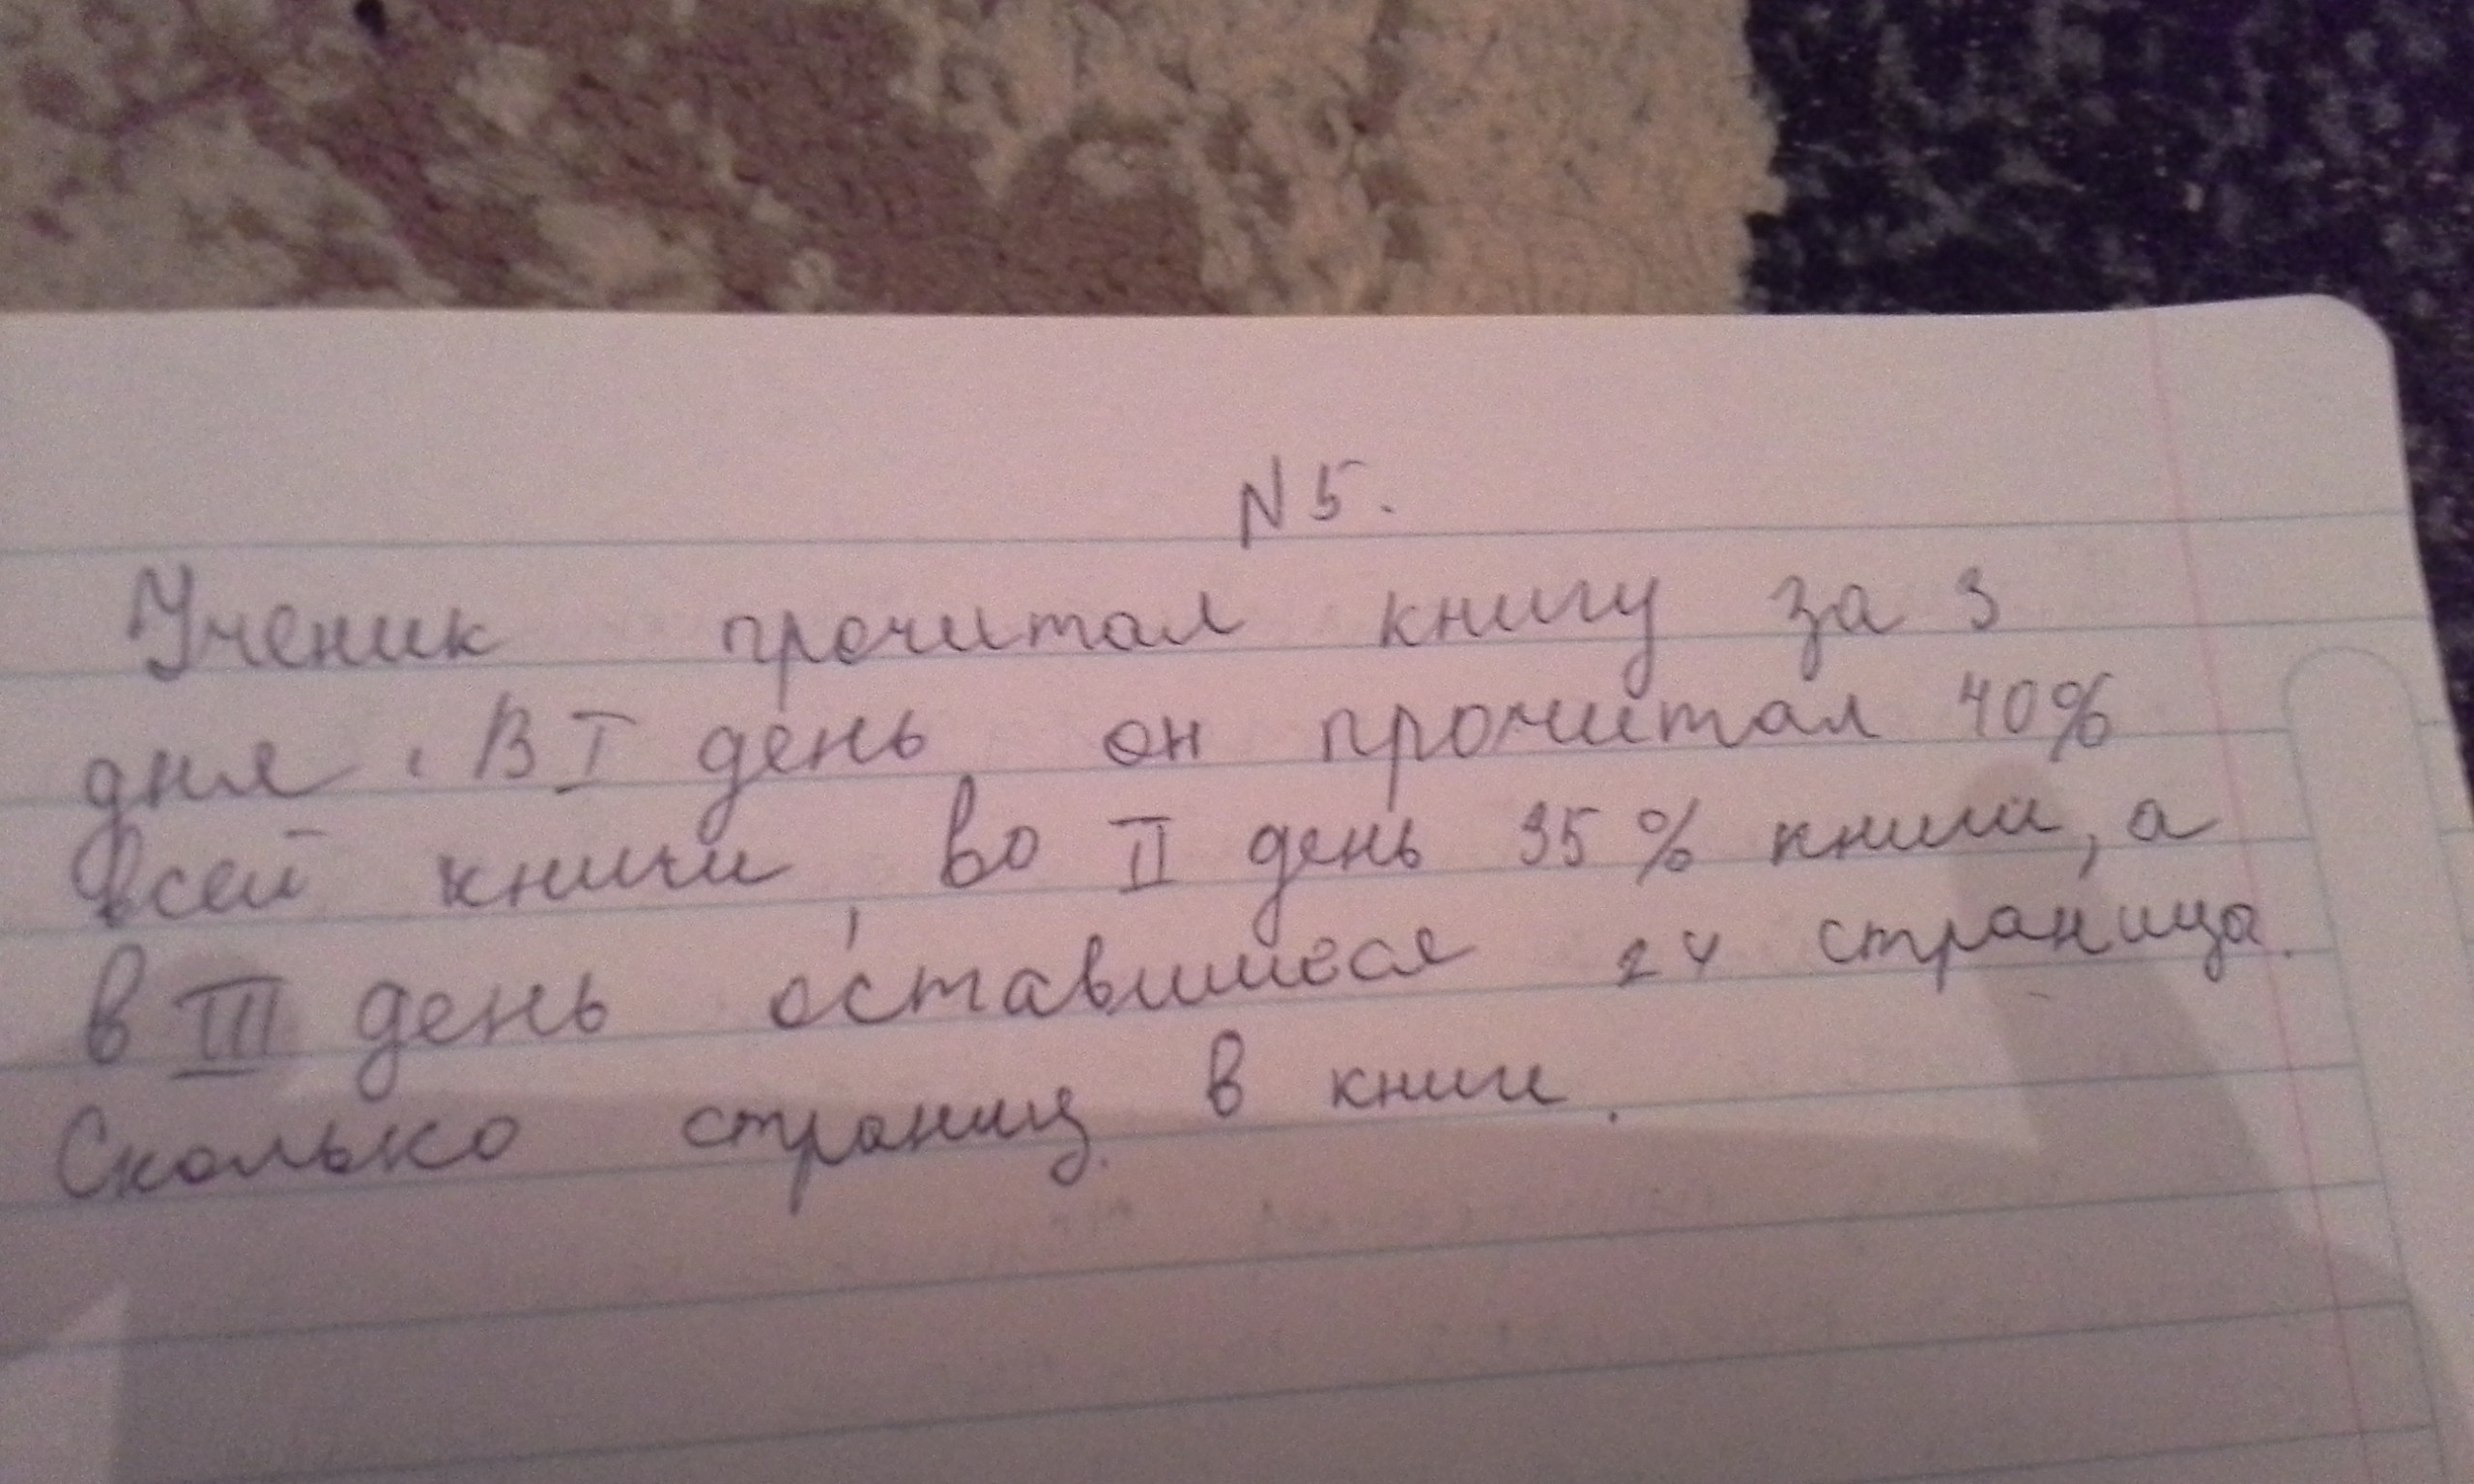 N 5.
Ученик прочитал книгу за 3
дня. В I день он прочитал 40%
всей книги, во II день 35% книги, а
в III день оставшиеся 24 страницы.
Сколько страниц в книги.